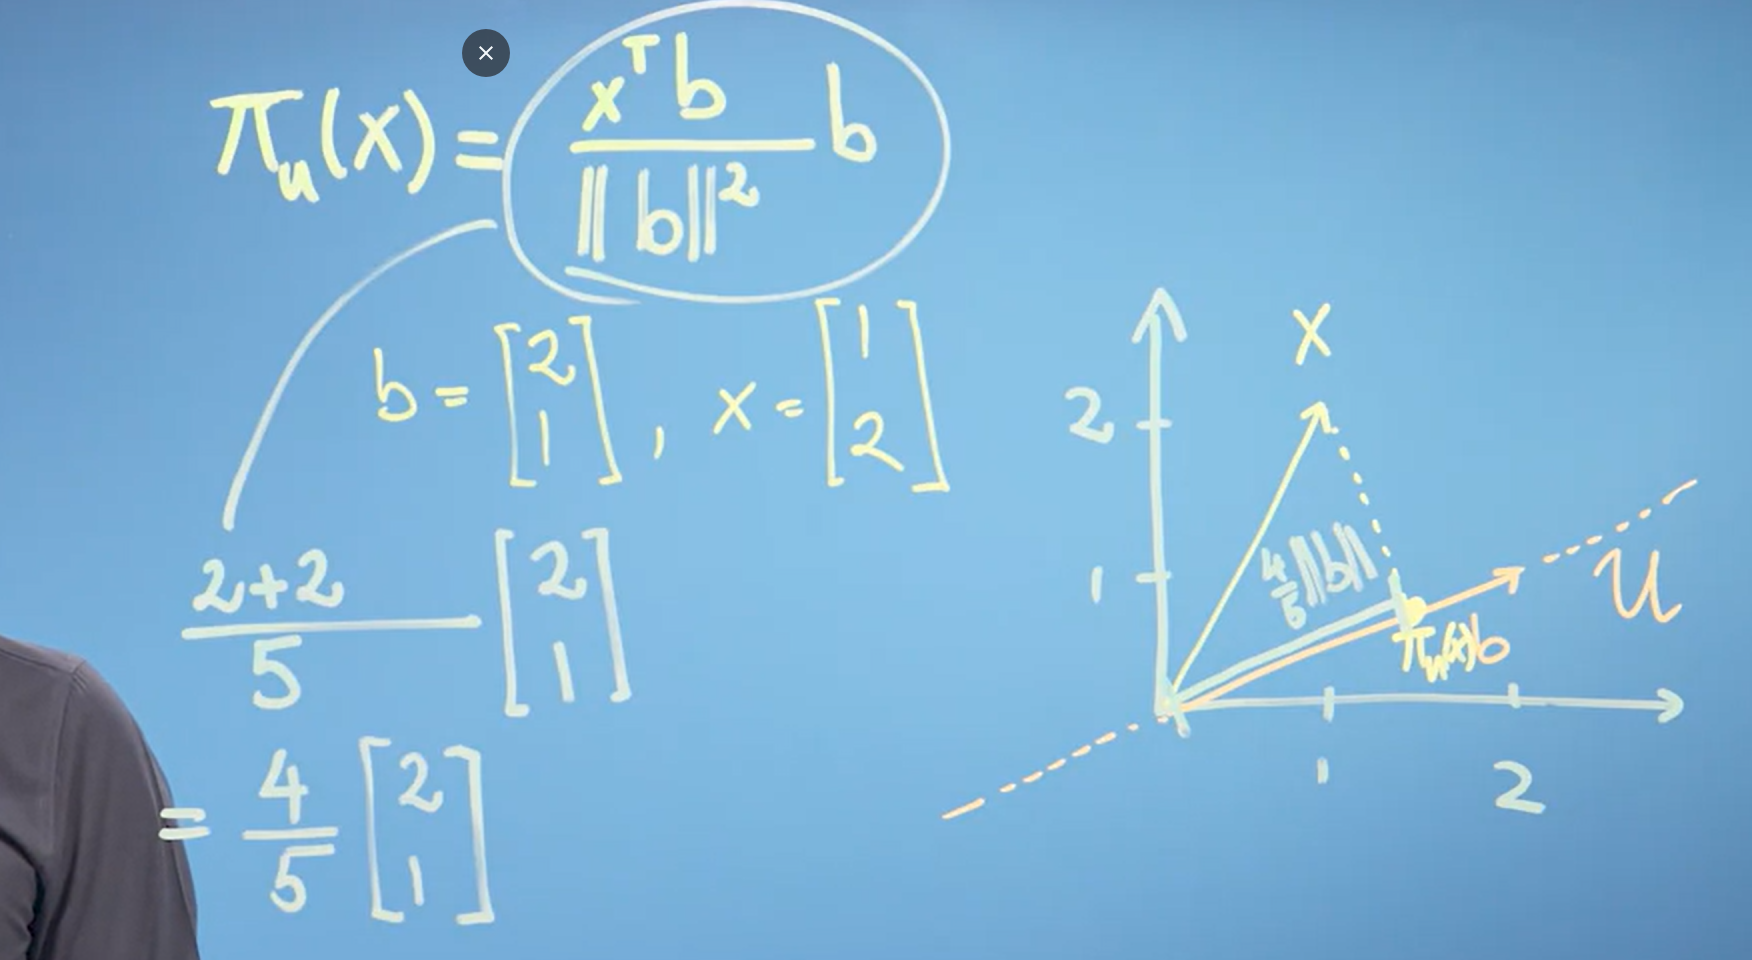 π_u(x) = x^T b / ||b||^2 b
b = [2 1], x = [1 2]
2+2 / 5 [2 1]
= 4/5 [2 1]
x
2
1
4/5 ||b||
U
π_u(x) b
1
2